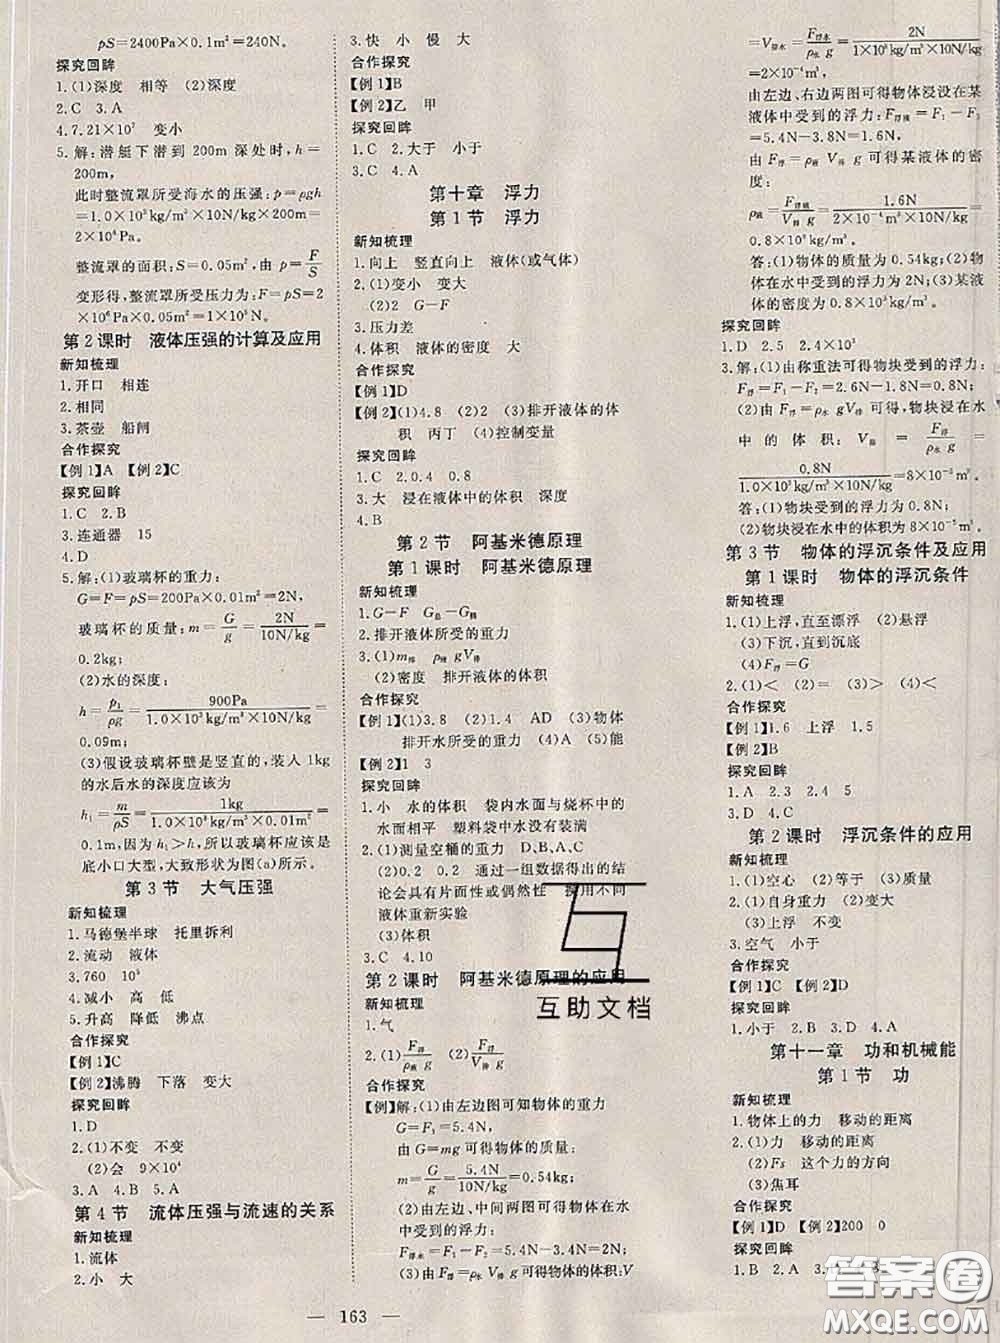 pS=2400Pa×0.1m²=240N。
探究回眸
1.(1)深度 相等 (2)深度
2.C 3.A
4.7.21×10⁷ 变小
5.解:潜艇下潜到200m深处时,h=
200m,
此时整流罩所受海水的压强:p=ρgh
=1.0×10³kg/m³×10N/kg×200m=
2×10⁶Pa。
整流罩的面积:S=0.05m²,由p=F/S
变形得,整流罩所受压力为:F=pS=2
×10⁶Pa×0.05m²=1×10⁵N。
第2课时 液体压强的计算及应用
新知梳理
1.开口 相连
2.相同
3.茶壶 船闸
合作探究
【例1】A 【例2】C
探究回眸
1.C 2.B
3.连通器 15
4.D
5.解:(1)玻璃杯的重力:
G=F=pS=200Pa×0.01m²=2N,
玻璃杯的质量:m=G/g=2N/10N/kg=
0.2kg;
(2)水的深度:
h=p₁/ρg=900Pa/1.0×10³kg/m³×10N/kg=
0.09m;
(3)假设玻璃杯壁是竖直的,装入1kg
的水后水的深度应该为
h₁=m/ρS=1kg/1.0×10³kg/m³×0.01m²=
0.1m,因为h₁>h,所以玻璃杯应该是
底小口大型,大致形状为图(a)所示。
第3节 大气压强
新知梳理
1.马德堡半球 托里拆利
2.流动 液体
3.760 10⁵
4.减小 高 低
5.升高 降低 沸点
合作探究
【例1】C
【例2】沸腾 下落 变大
探究回眸
1.D
2.(1)不变 不变
(2)会 9×10⁴
3.A 4.B 5.A
第4节 流体压强与流速的关系
新知梳理
1.流体
2.小 大
3.快 小 慢 大
合作探究
【例1】B
【例2】乙 甲
探究回眸
1.C 2.大于 小于
3.C 4.A
第十章 浮力
第1节 浮力
新知梳理
1.向上 竖直向上 液体(或气体)
2.(1)变小 变大
(2)2 G-F
3.压力差
4.体积 液体的密度 大
合作探究
【例1】D
【例2】(1)4.8 (2)2 (3)排开液体的体
积 丙丁 (4)控制变量
探究回眸
1.C 2.0.4 0.8
3.大 浸在液体中的体积 深度
4.B
第2节 阿基米德原理
第1课时 阿基米德原理
新知梳理
1.G-F G总-G桶
2.排开液体所受的重力
3.(1)m排 ρ液gV排
(2)密度 排开液体的体积
合作探究
【例1】(1)3.8 (2)1.4 AD (3)物体
排开水所受的重力 (4)A (5)能
【例2】1 3
探究回眸
1.小 水的体积 袋内水面与烧杯中的
水面相平 塑料袋中水没有装满
2.(1)测量空桶的重力 D、B、A、C
(2)0.2 0.2 通过一组数据得出的结
论会具有片面性或偶然性 换用不同
液体重新实验
(3)体积
3.C 4.10
第2课时 阿基米德原理的应用
新知梳理
1.气
2.(1)F浮/ρ液g (2)F浮/V排g
合作探究
【例】解:(1)由左边图可知物体的重力
G=F₁=5.4N,
由G=mg可得物体的质量:
m=G/g=5.4N/10N/kg=0.54kg;
(2)由左边、中间两图可得物体在水
中受到的浮力:
F浮水=F₁-F₂=5.4N-3.4N=2N;
(3)由F浮=ρ水V排g可得物体的体积:V
=V排水=F浮水/ρ水g=2N/1×10³kg/m³×10N/kg
=2×10⁻⁴m³,
由左边、右边两图可得物体浸没在某
液体中受到的浮力:F浮液=F₁-F₃
=5.4N-3.8N=1.6N,
由F浮=ρ液V排g可得某液体的密
度:
ρ液=F浮液/V排g=1.6N/2×10⁻⁴m³×10N/kg=
0.8×10³kg/m³。
答:(1)物体的质量为0.54kg;(2)物
体在水中受到的浮力为2N;(3)某液
体的密度为0.8×10³kg/m³。
探究回眸
1.D 2.5 2.4×10³
3.解:(1)由称重法可得物块受到的浮力:
F浮=F₁-F₂=2.6N-1.8N=0.8N;
(2)由F浮=ρ水gV排可得,物块浸在水
中的体积:V排=F浮/ρ水g=
0.8N/1.0×10³kg/m³×10N/kg=8×10⁻⁵m³。
答:(1)物块受到的浮力为0.8N;
(2)物块浸在水中的体积为8×10⁻⁵m³。
第3节 物体的浮沉条件及应用
第1课时 物体的浮沉条件
新知梳理
1.(1)上浮,直至漂浮 (2)悬浮
(3)下沉,直到沉底
(4)F浮=G
2.(1)< (2)= (3)> (4)<
合作探究
【例1】1.6 上浮 1.5
【例2】B
探究回眸
1.A 2.3 2.4 5
3.D 4.C
第2课时 浮沉条件的应用
新知梳理
1.(1)空心 (2)等于 (3)质量
2.(1)自身重力 (2)变大
(3)上浮 不变
3.空气 小于
合作探究
【例1】C 【例2】C
探究回眸
1.小于 2.B 3.D 4.A
第十一章 功和机械能
第1节 功
新知梳理
1.物体上的力 移动的距离
2.(1)力 移动的距离
(2)Fs 这个力的方向
(3)焦耳
合作探究
【例1】D 【例2】200 0
探究回眸
1.B 2.A
— 163 —
互助文档
答案圈
MXQE.COM